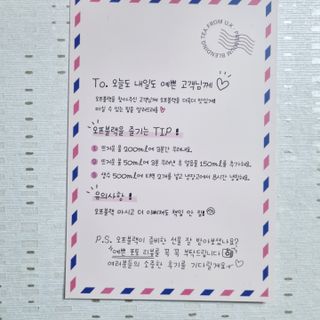 TEA FROM U.K. PREMIUM BLENDING
To. 오늘도 내일도 예쁜 고객님께 ♡
오프블랙을 찾아주신 고객님께 오프블랙을 더욱더 맛있게
마실 수 있는 팁을 알려드려요
오프블랙을 즐기는 TIP !
1 뜨거운 물 200ml에 3분간 우려내요.
2 뜨거운 물 50ml에 3분 우려낸 후 얼음물 150ml를 추가해요.
3 생수 500ml에 티백 2개를 넣고 냉장고에서 8시간 냉침해요.
유의사항 !
오프블랙 마시고 더 이뻐져도 책임 안 짐
P.S. 오프블랙이 준비한 선물 잘 받아보셨나요?
예쁜 포토 리뷰를 꼭 꼭 부탁드립니다
여러분들의 소중한 후기를 기다릴게요~♡